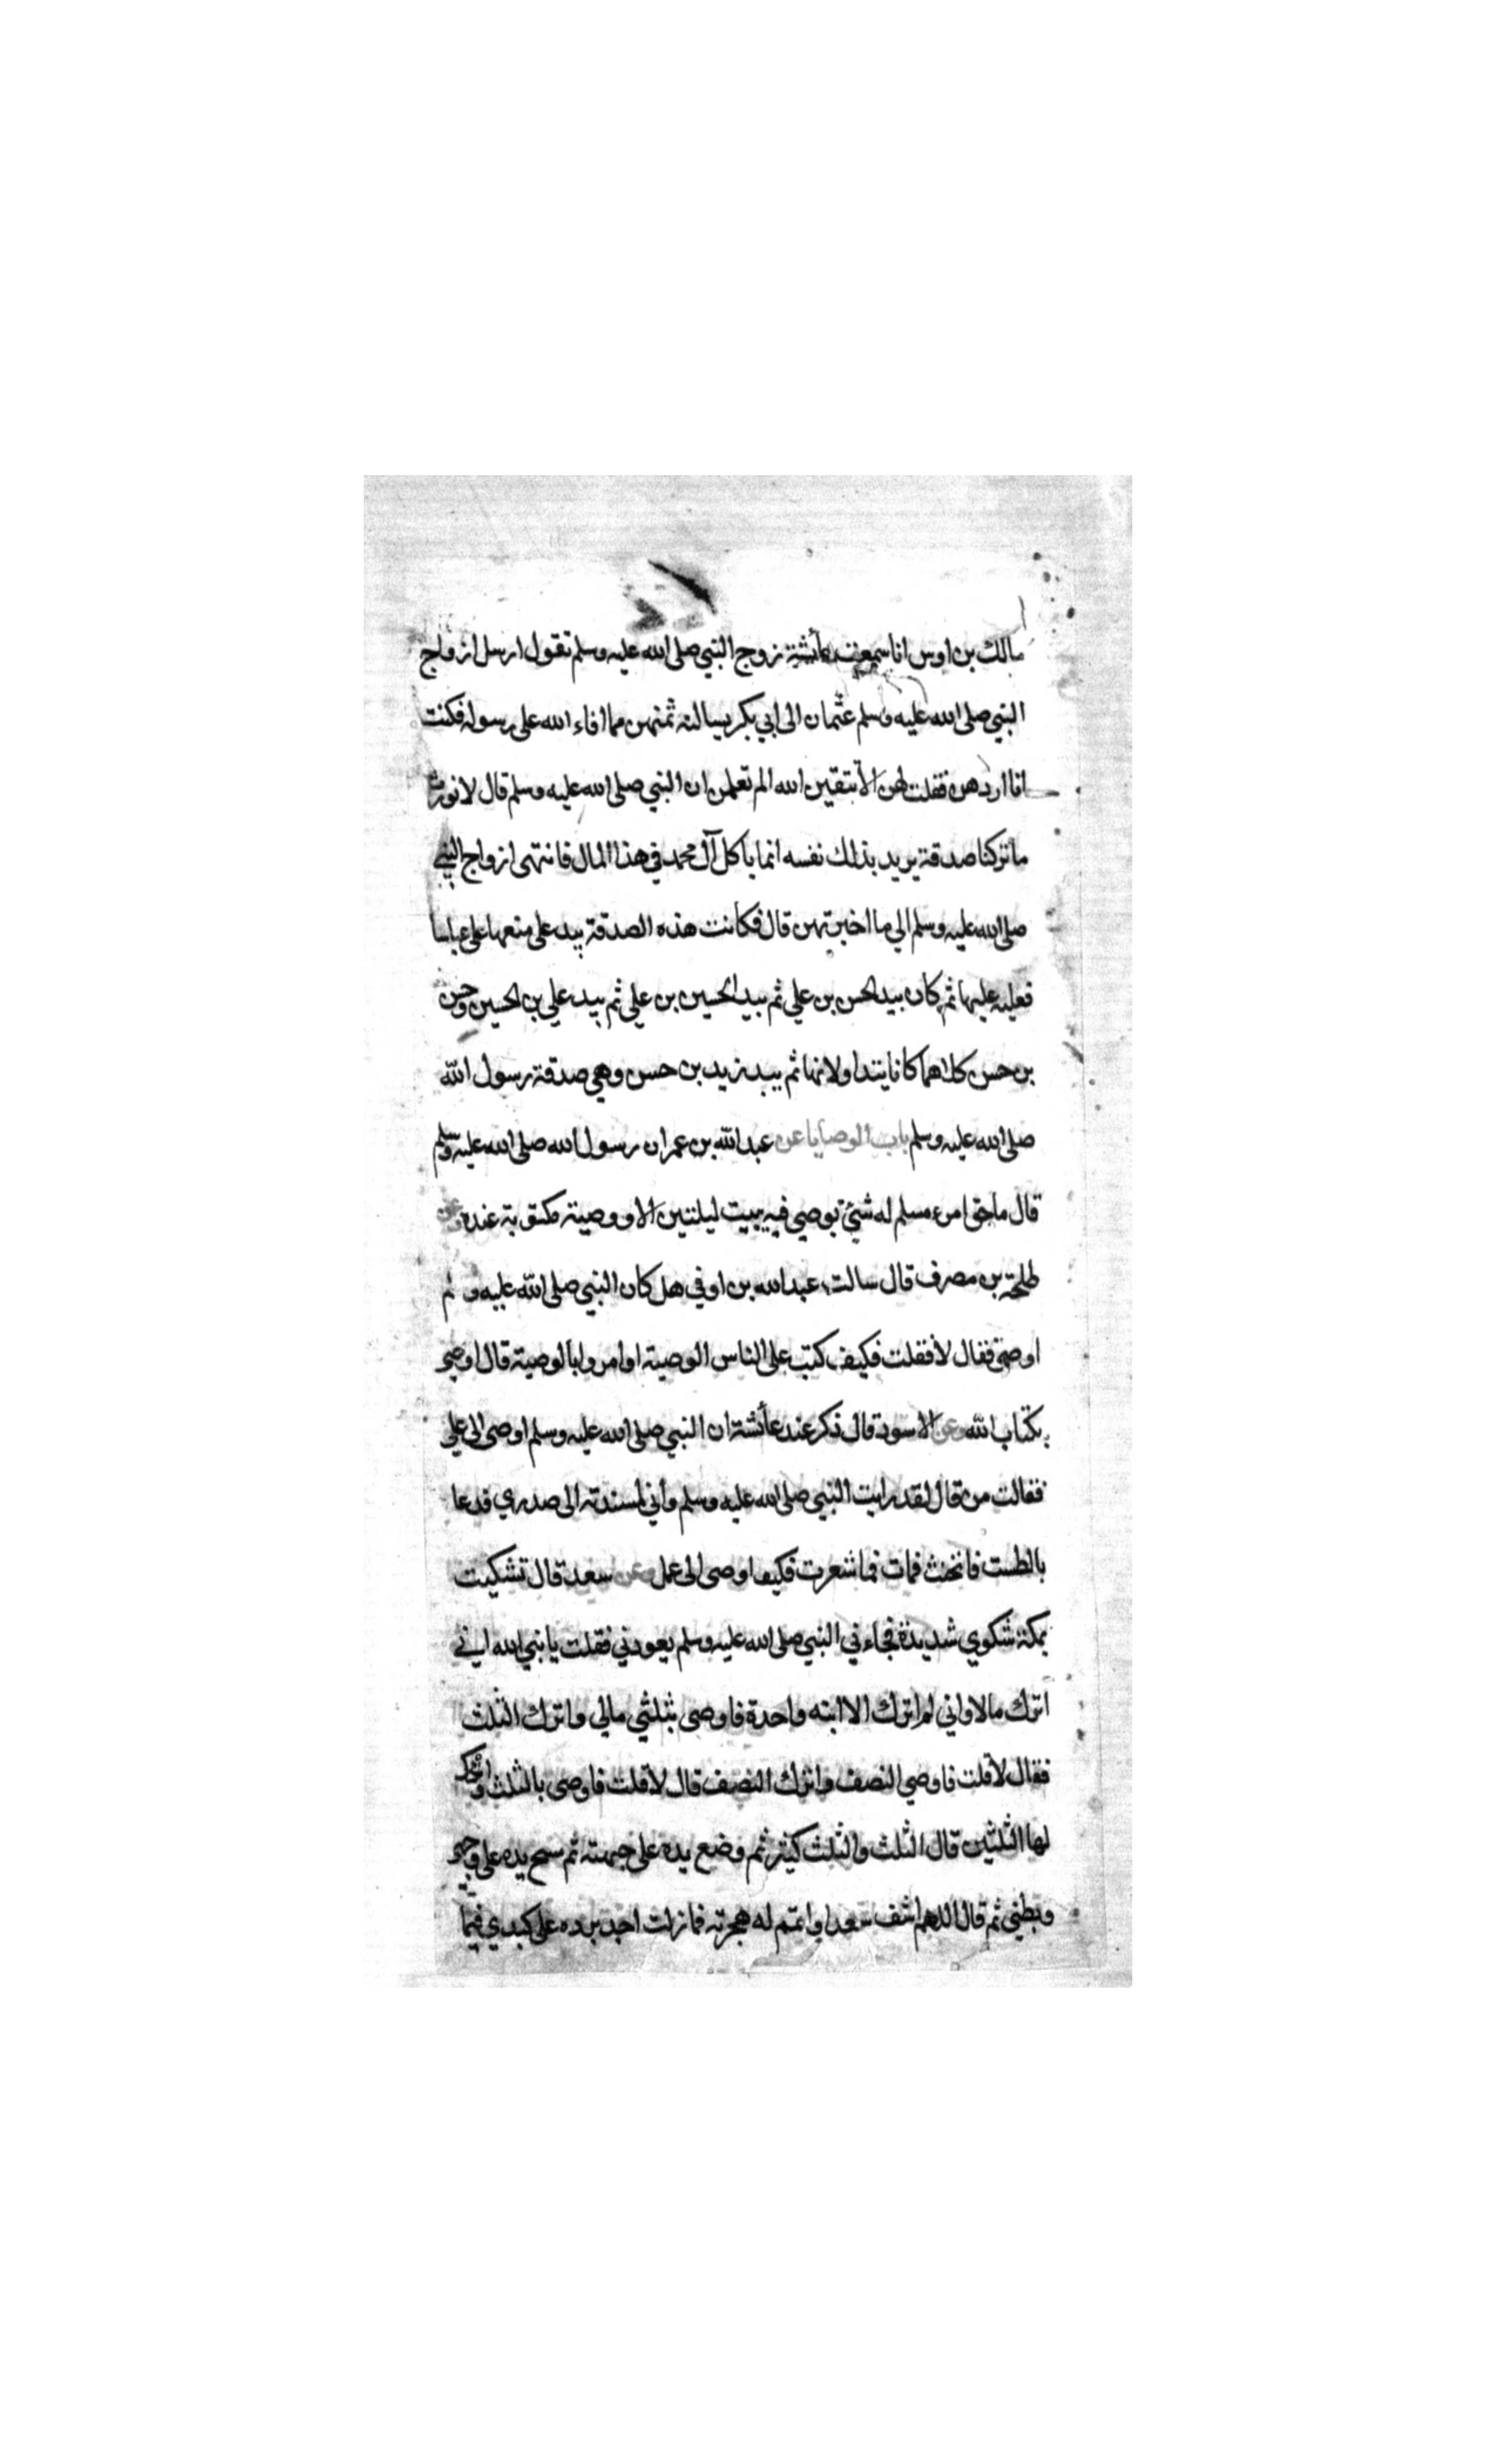 مالك بن اوس انا سمعت عائشة زوج النبي صلى الله عليه وسلم تقول ارسل ازواج
النبي صلى الله عليه وسلم عثمان الى ابي بكر يسالنه ثمنهن مما افاء الله على رسوله فكنت
انا اردهن فقلت لهن الا تتقين الله الم تعلمن ان النبي صلى الله عليه وسلم قال لا نورث
ما تركنا صدقة يريد بذلك نفسه انما ياكل آل محمد في هذا المال فانتهى ازواج النبي
صلى الله عليه وسلم الي ما اخبرتهن قال فكانت هذه الصدقة بيد علي منعها علي عباسا
فغلبه عليها ثم كان بيد الحسن بن علي ثم بيد الحسين بن علي ثم بيد علي بن الحسين وحسن
بن حسن كلاهما كانا يتداولانها ثم بيد زيد بن حسن وهي صدقة رسول الله
صلى الله عليه وسلم باب الوصايا عن عبد الله بن عمر ان رسول الله صلى الله عليه وسلم
قال ما حق امرء مسلم له شيئ يوصي فيه يبيت ليلتين الا ووصيته مكتوبة عنده وعن
طلحة بن مصرف قال سالت عبد الله بن اوفي هل كان النبي صلى الله عليه وسلم
اوصى فقال لا فقلت فكيف كتب على الناس الوصية او امروا بالوصية قال اوصى
بكتاب الله وعن الاسود قال ذكر عند عائشة ان النبي صلى الله عليه وسلم اوصى الى علي
فقالت من قال لقد رايت النبي صلى الله عليه وسلم واني لمسندته الى صدري فدعا
بالطست فانخنث فمات فما شعرت فكيف اوصى الى علي وعن سعد قال تشكيت
بمكة شكوي شديدة فجاءني النبي صلى الله عليه وسلم يعودني فقلت يا نبي الله اني
اترك مالا واني لم اترك الا ابنه واحدة فاوصى بثلثي مالي واترك الثلث
فقال لا قلت فاوصي النصف واترك النصف قال لا قلت فاوصى بالثلث واترك
لها الثلثين قال الثلث والثلث كثير ثم وضع يده على جبهته ثم مسح يده على وجهي
وبطني ثم قال اللهم اشف سعدا واتمم له هجرته فما زلت اجد برده على كبدي فيما